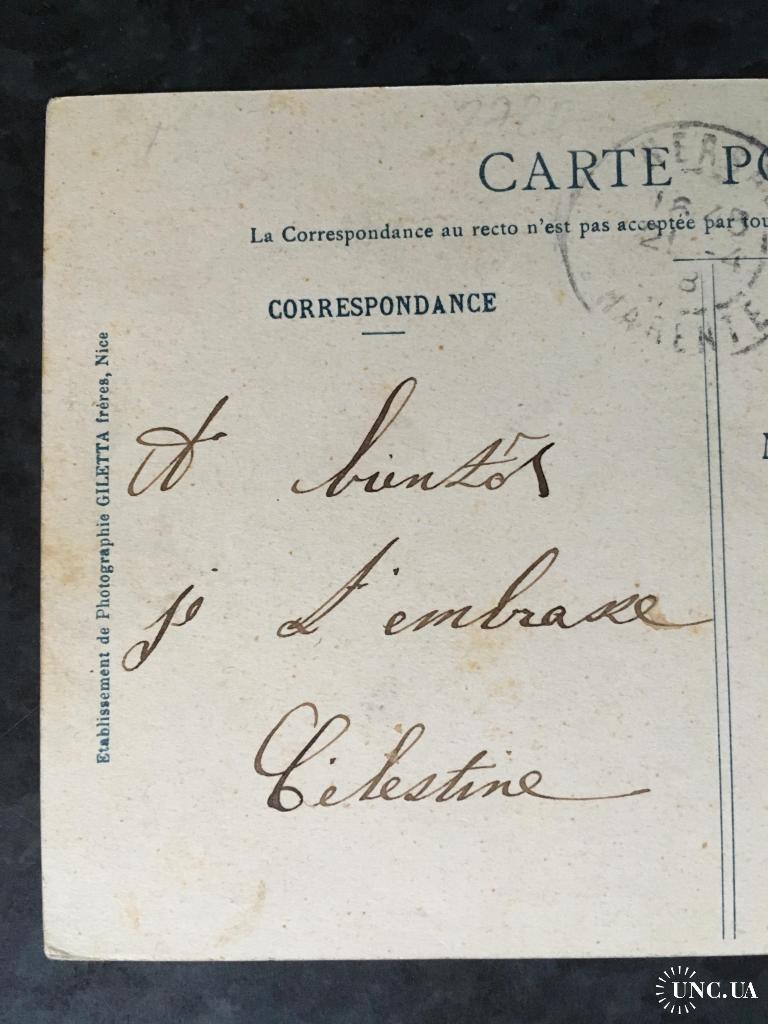 CARTE PO
La Correspondance au recto n'est pas acceptée par tou
CORRESPONDANCE
Etablissement de Photographie GILETTA frères, Nice
A bientôt
je t'embrasse
Célestine
UNC.UA